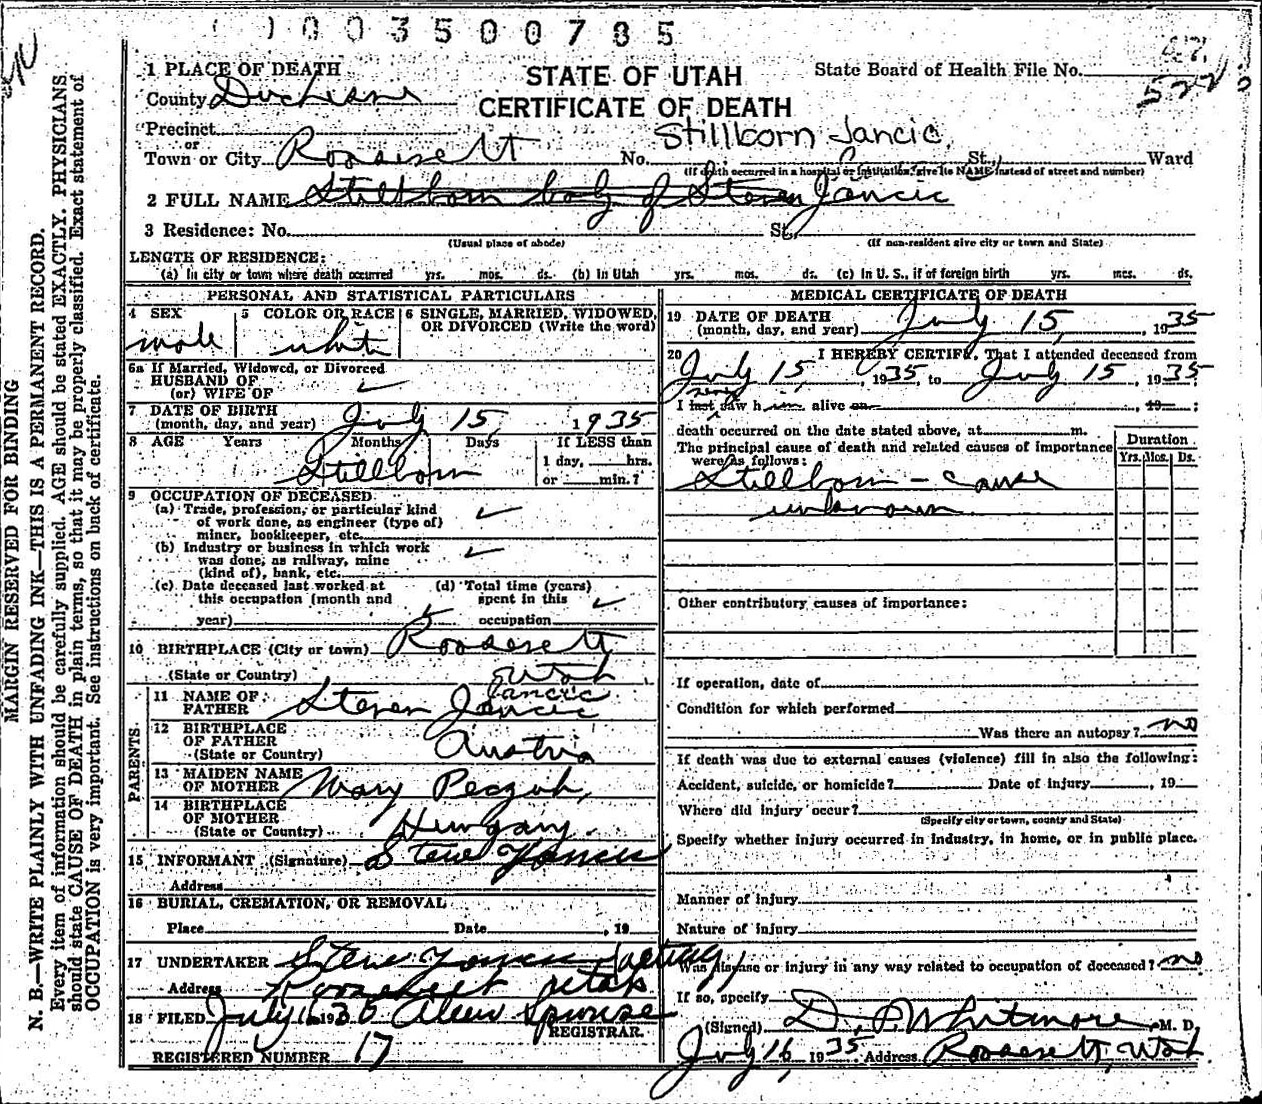 003500785
47
522
1 PLACE OF DEATH
STATE OF UTAH
State Board of Health File No.
County Duchesne
CERTIFICATE OF DEATH
Precinct
or
Stillborn Jancic
Town or City Roosevelt No. St., Ward
(If death occurred in a hospital or institution, give its NAME instead of street and number)
2 FULL NAME Stillborn baby of Steven Jancic
3 Residence: No. St.,
(Usual place of abode) (If non-resident give city or town and State)
LENGTH OF RESIDENCE:
(a) In city or town where death occurred yrs. mos. ds. (b) In Utah yrs. mos. ds. (c) In U. S., if of foreign birth yrs. mos. ds.
PERSONAL AND STATISTICAL PARTICULARS
4 SEX 5 COLOR OR RACE 6 SINGLE, MARRIED, WIDOWED,
OR DIVORCED (Write the word)
male white
6a If Married, Widowed, or Divorced
HUSBAND OF
(or) WIFE OF
7 DATE OF BIRTH
(month, day, and year) July 15, 1935
8 AGE Years Months Days If LESS than
1 day, hrs.
or min.?
Stillborn
9 OCCUPATION OF DECEASED
(a) Trade, profession, or particular kind
of work done, as engineer (type of)
miner, bookkeeper, etc.
(b) Industry or business in which work
was done, as railway, mine
(kind of), bank, etc.
(c) Date deceased last worked at (d) Total time (years)
this occupation (month and spent in this
year) occupation
10 BIRTHPLACE (City or town) Roosevelt
(State or Country) Utah
Jancic
11 NAME OF
FATHER Steven Jancic
12 BIRTHPLACE
OF FATHER Austria
(State or Country)
PARENTS
13 MAIDEN NAME
OF MOTHER Mary
14 BIRTHPLACE
OF MOTHER
(State or Country) Hungary.
15 INFORMANT (Signature) Steve Yancic
Address
16 BURIAL, CREMATION, OR REMOVAL
Place Date , 19
17 UNDERTAKER Steve Yancic
Address Roosevelt Utah
18 FILED July 16 1935
REGISTRAR.
REGISTERED NUMBER 17
MEDICAL CERTIFICATE OF DEATH
19 DATE OF DEATH
(month, day, and year) July 15, 1935
20 I HEREBY CERTIFY, That I attended deceased from
July 15, 1935, to July 15, 1935
I last saw him alive on , 19 ;
death occurred on the date stated above, at m.
The principal cause of death and related causes of importance
were as follows:
Duration
Yrs. Mos. Ds.
Stillborn - cause
unknown
Other contributory causes of importance:
If operation, date of
Condition for which performed
Was there an autopsy? no
If death was due to external causes (violence) fill in also the following:
Accident, suicide, or homicide? Date of injury , 19
Where did injury occur?
(Specify city or town, county and State)
Specify whether injury occurred in industry, in home, or in public place.
Manner of injury
Nature of injury
Was disease or injury in any way related to occupation of deceased? no
If so, specify
(Signed) D. P. Whitmore, M. D.
July 16, 1935 Address Roosevelt, Utah
MARGIN RESERVED FOR BINDING
N. B.—WRITE PLAINLY WITH UNFADING INK—THIS IS A PERMANENT RECORD.
Every item of information should be carefully supplied. AGE should be stated EXACTLY. PHYSICIANS
should state CAUSE OF DEATH in plain terms, so that it may be properly classified. Exact statement of
OCCUPATION is very important. See instructions on back of certificate.